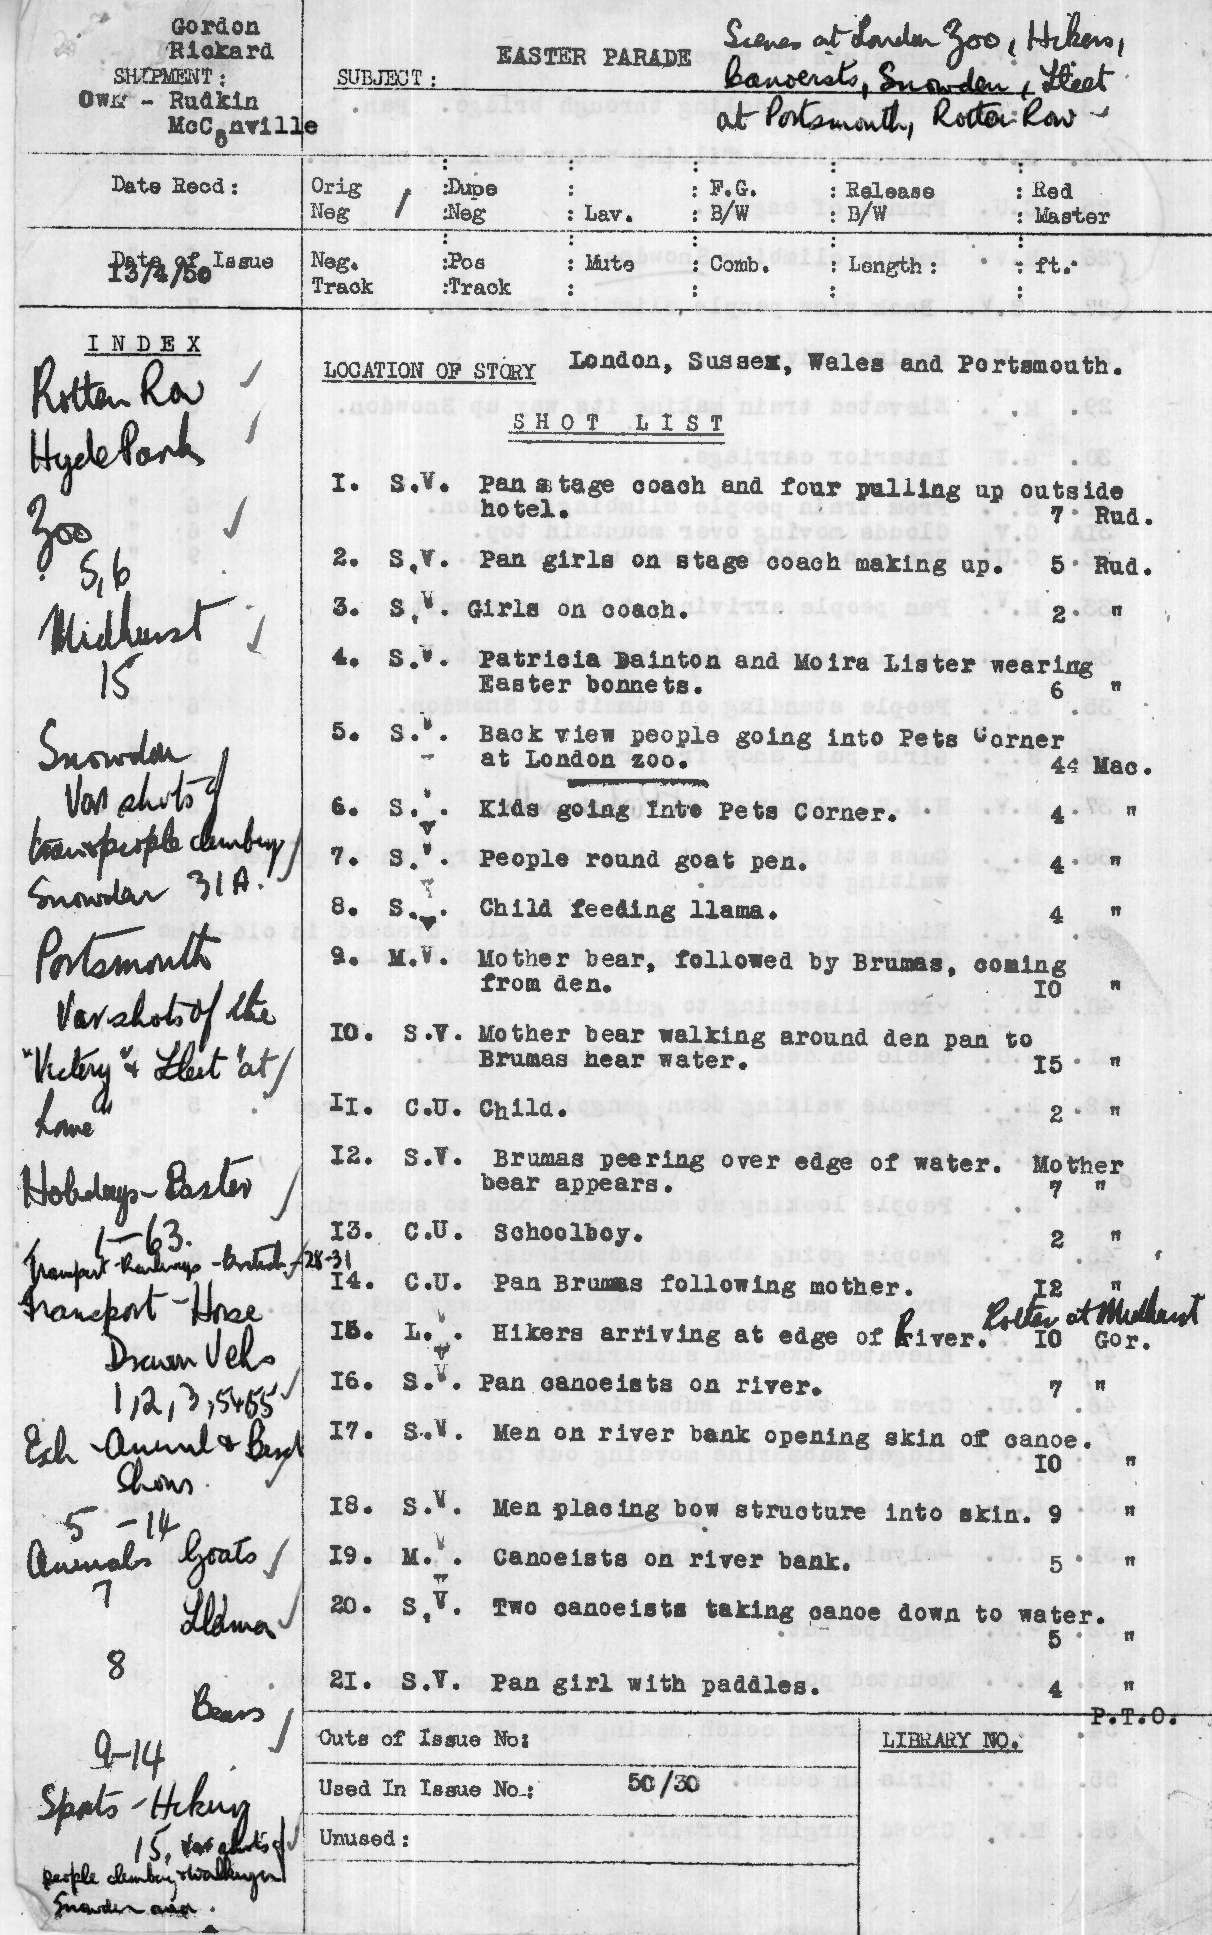 Gordon
Rickard
SHIPMENT:
Own - Rudkin
McConville
SUBJECT: EASTER PARADE
Scenes at London Zoo, Hikers,
Canoeists, Snowdon, Fleet
at Portsmouth, Rotten Row
Date Recd: Orig Neg / :Dupe :Neg : Lav. : F.G. B/W : Release B/W : Red Master
Date of Issue
13/4/50
Neg. Track :Pos :Track : Mute : Comb. : Length: : ft.
INDEX
Rotten Row
Hyde Park
Zoo
5,6
Midhurst
15
Snowdon
Var shots of
train & people climbing
Snowdon 31A.
Portsmouth
Var shots of the
"Victory" & Fleet "at
Home"
Holidays - Easter
1-63.
Transport - Railways - British - 28-31
Transport - Horse
Drawn Vehs
1,2,3,54,55
Exh - Animal & Bird
Shows.
5-14
Animals Goats
7
Llama
8
Bears
9-14
Sports - Hiking
15, Var shots of
people climbing & walking in
Snowdon area.
LOCATION OF STORY London, Sussex, Wales and Portsmouth.
SHOT LIST
1. S.V. Pan stage coach and four pulling up outside
hotel. 7 Rud.
2. S.V. Pan girls on stage coach making up. 5 Rud.
3. S.V. Girls on coach. 2 "
4. S.V. Patricia Dainton and Moira Lister wearing
Easter bonnets. 6 "
5. S.V. Back view people going into Pets Corner
at London zoo. 44 Mac.
6. S.V. Kids going into Pets Corner. 4 "
7. S.V. People round goat pen. 4 "
8. S.V. Child feeding llama. 4 "
9. M.V. Mother bear, followed by Brumas, coming
from den. 10 "
10. S.V. Mother bear walking around den pan to
Brumas near water. 15 "
11. C.U. Child. 2 "
12. S.V. Brumas peering over edge of water. Mother
bear appears. 7 "
13. C.U. Schoolboy. 2 "
14. C.U. Pan Brumas following mother. 12 "
15. L.V. Hikers arriving at edge of River. Rother at Midhurst 10 Gor.
16. S.V. Pan canoeists on river. 7 "
17. S.V. Men on river bank opening skin of canoe.
10 "
18. S.V. Men placing bow structure into skin. 9 "
19. M.V. Canoeists on river bank. 5 "
20. S.V. Two canoeists taking canoe down to water.
5 "
21. S.V. Pan girl with paddles. 4 "
P.T.O.
Cuts of Issue No:
LIBRARY NO.
Used In Issue No.: 50/30
Unused: